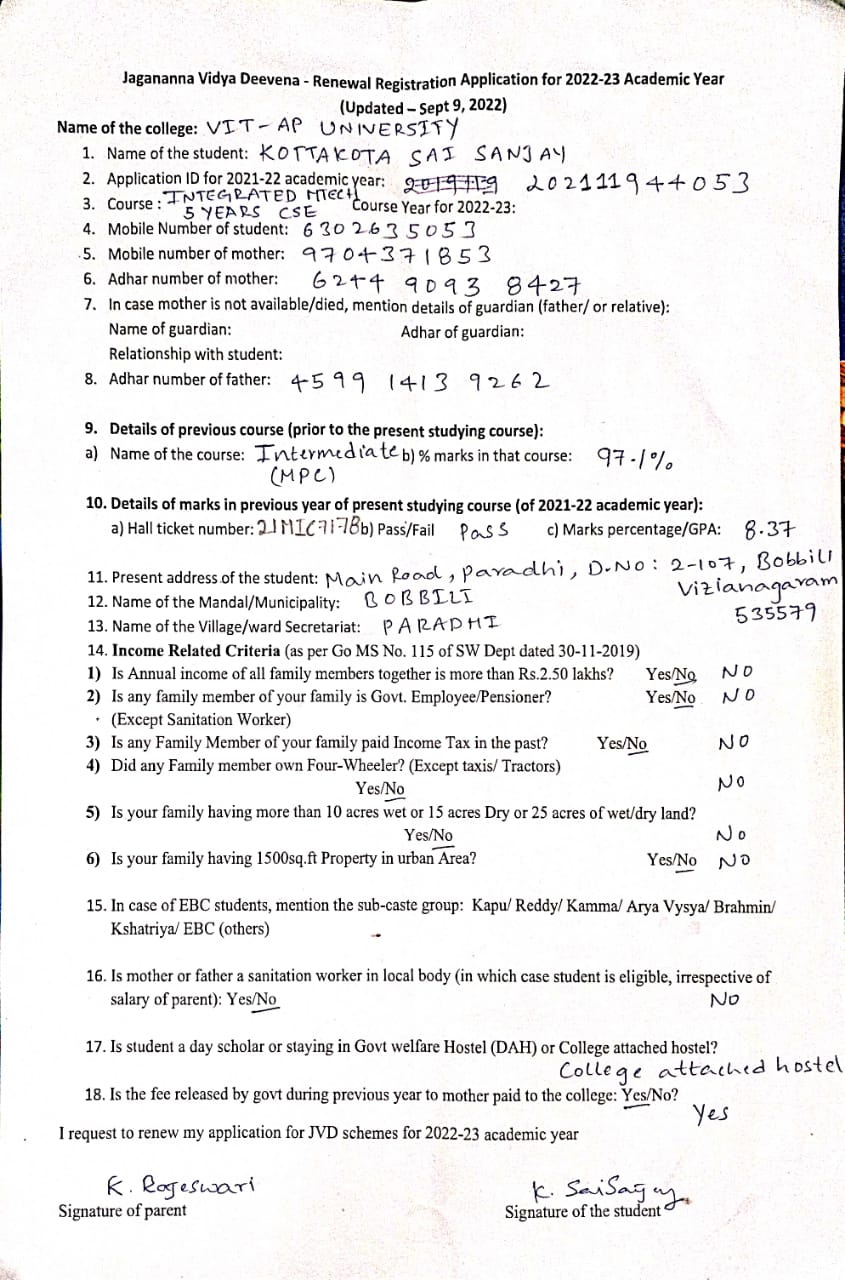 Jagananna Vidya Deevena - Renewal Registration Application for 2022-23 Academic Year
(Updated – Sept 9, 2022)
Name of the college: VIT-AP UNIVERSITY
1. Name of the student: KOTTAKOTA SAI SANJAY
2. Application ID for 2021-22 academic year: 202111944053
3. Course : INTEGRATED MTECH 5 YEARS CSE Course Year for 2022-23:
4. Mobile Number of student: 6302635053
5. Mobile number of mother: 9704371853
6. Adhar number of mother: 6244 9093 8427
7. In case mother is not available/died, mention details of guardian (father/ or relative):
Name of guardian: Adhar of guardian:
Relationship with student:
8. Adhar number of father: 4599 1413 9262
9. Details of previous course (prior to the present studying course):
a) Name of the course: Intermediate b) % marks in that course: 97.1%
(MPC)
10. Details of marks in previous year of present studying course (of 2021-22 academic year):
a) Hall ticket number: 21MIC7178 b) Pass/Fail Pass c) Marks percentage/GPA: 8.37
11. Present address of the student: Main Road, Paradhi, D.No: 2-107, Bobbili
Vizianagaram
12. Name of the Mandal/Municipality: BOBBILI
535579
13. Name of the Village/ward Secretariat: PARADHI
14. Income Related Criteria (as per Go MS No. 115 of SW Dept dated 30-11-2019)
1) Is Annual income of all family members together is more than Rs.2.50 lakhs? Yes/No NO
2) Is any family member of your family is Govt. Employee/Pensioner? Yes/No NO
(Except Sanitation Worker)
3) Is any Family Member of your family paid Income Tax in the past? Yes/No NO
4) Did any Family member own Four-Wheeler? (Except taxis/ Tractors)
Yes/No NO
5) Is your family having more than 10 acres wet or 15 acres Dry or 25 acres of wet/dry land?
Yes/No No
6) Is your family having 1500sq.ft Property in urban Area? Yes/No NO
15. In case of EBC students, mention the sub-caste group: Kapu/ Reddy/ Kamma/ Arya Vysya/ Brahmin/
Kshatriya/ EBC (others) -
16. Is mother or father a sanitation worker in local body (in which case student is eligible, irrespective of
salary of parent): Yes/No NO
17. Is student a day scholar or staying in Govt welfare Hostel (DAH) or College attached hostel?
College attached hostel
18. Is the fee released by govt during previous year to mother paid to the college: Yes/No?
Yes
I request to renew my application for JVD schemes for 2022-23 academic year
K. Rajeswari K. SaiSanjay
Signature of parent Signature of the student